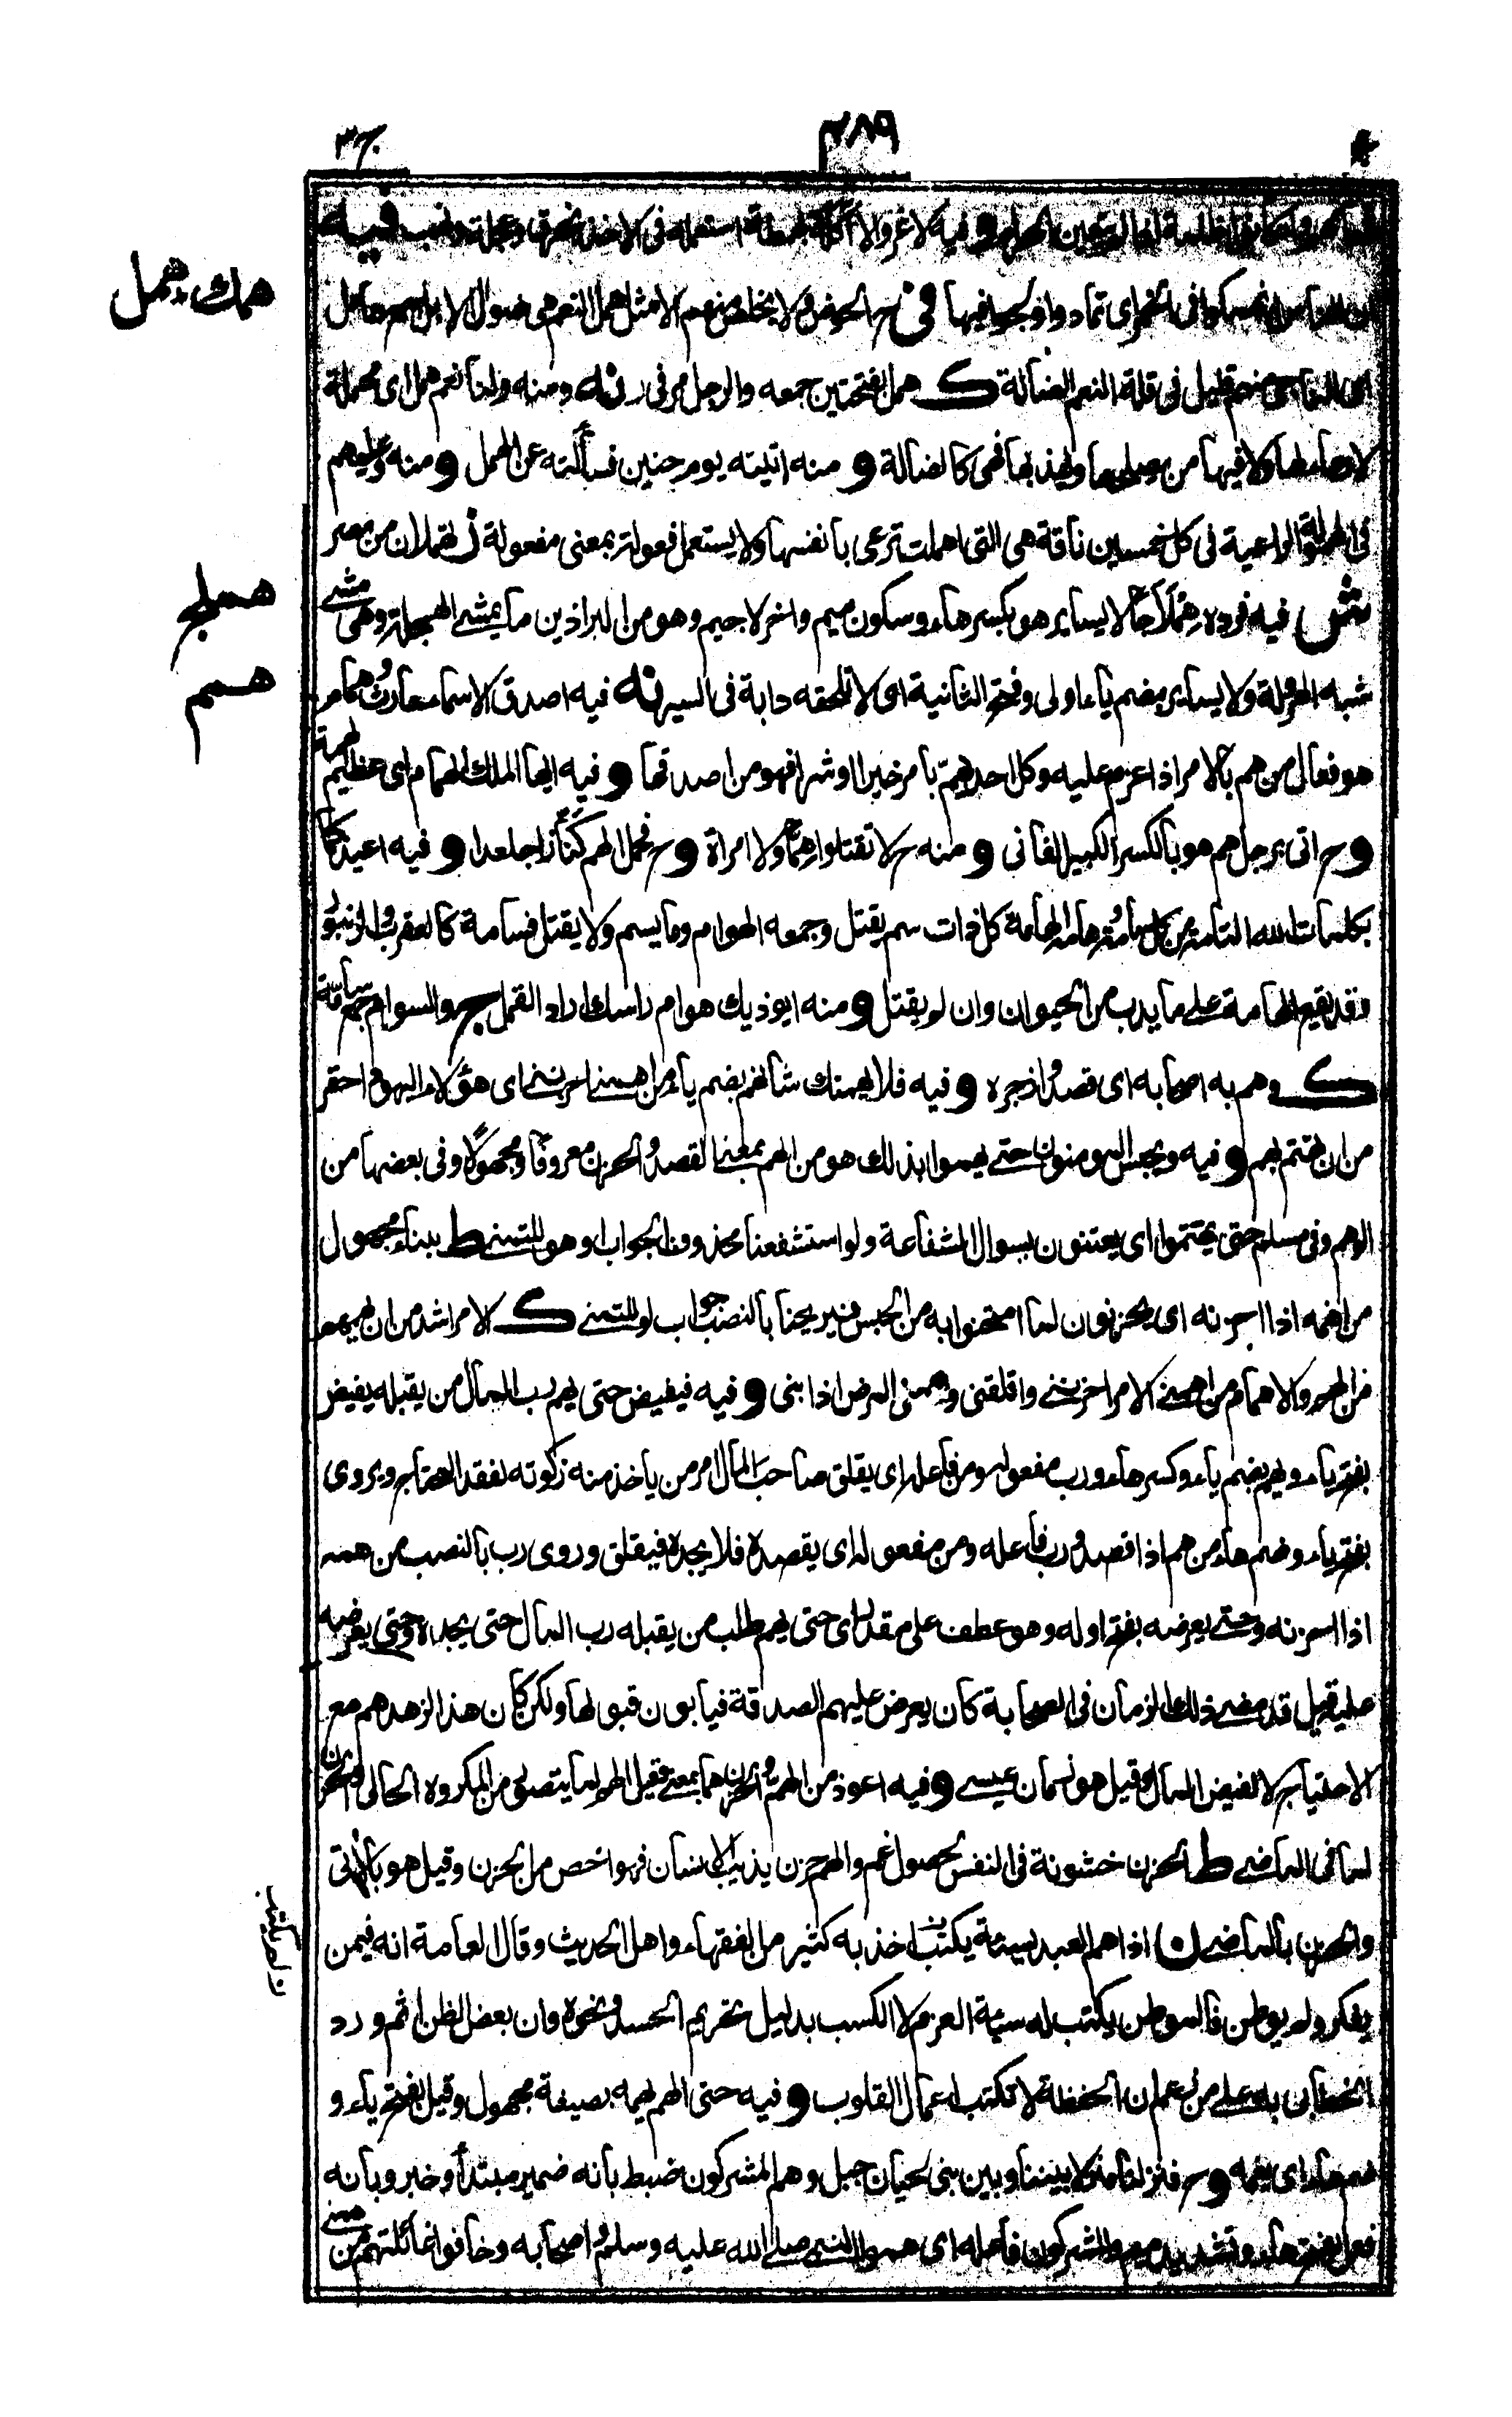 ٤٨٩
همك همل
ان الناس انهمكوا في الخمر اى تمادوا ولجوا فيها في ح الحوض فلا يخلص منهم الا مثل همل النعم هى ضوال الابل جمع هامل
اى الناجى منهم قليل في قلة النعم الضالة ك همل بفتحتين جمعه والرجل مر في ر نه ومنه ولنا نعم همل اى مهملة
لا رعاء لها ولا فيها من يصلحها ويهديها فهى كالضالة و منه اتيته يوم حنين فسألته عن الهمل و منه وعليهم
في الهمولة الراعية في كل خمسين ناقة هى التى اهملت ترعى بانفسها ولا يستعمل فعولة بمعنى مفعولة
هملج
ش فيه فرده هملاجا لا يساير هو بكسر هاء وسكون ميم واخر لا جيم وهو من البراذين ما يمشى الهملجة وهى مشى
همم
شبه الهرولة ولا يساير بضم ياء اولى وفتح الثانية اى لا تلحقه دابة في السير نه فيه اصدق الاسماء حارث وهمام
هو فعال من هم بالامر اذا عزم عليه وكل احد يهم بامر خيرا او شرا فهو من اصدقها و فيه ايها الملك الهمام اى عظيم الهمة
و ح اتى برجل هم هو بالكسر الكبير الفانى و منه ح لا تقتلوا هما ولا امراة و ح فحمل الهم كنازا جلعدا و فيه اعيذكما
بكلمات الله التامة من كل سامة وهامة الهامة كل ذات سم يقتل وجمعه الهوام وما يسم ولا يقتل فسامة كالعقرب والزنبور
وقد يقع الهامة على ما يدب من الحيوان وان لم يقتل و منه ايوذيك هوام راسك اراد القمل ج والسوام جمع سامة
ك وهم به اصحابه اى قصدوا زجره و فيه فلا يهمنك شانهم بضم ياء من اهمنى احزننى اى هؤلاء اليهود احقر
من ان تهتم بهم و فيه ويحبس المومنون حتى يهموا بذلك هو من الهم بمعنى القصد والحزن معروفا ومجهولا وفى بعضها من
الوهم وفى مسلم حتى يهتموا اى يعتنون بسوال الشفاعة ولو استشفعنا محذوف الجواب او هو للتمنى ط ببناء مجهول
من اهمه اذا احزنه اى يحزنون لما امتحنوا به من الحبس فيريحنا بالنصب جواب لو للتمنى ك الامر اشد من ان يهمهم
من الهم والاهمام من اهمنى الامر احزننى واقلقنى وهمنى المرض اذابنى و فيه فيفيض حتى يهم رب المال من يقبله يفيض
بفتح ياء ويهم بضم ياء وكسر هاء ورب مفعوله ومن فاعله اى يقلق صاحب المال امر من ياخذ منه زكوته لفقد المحتاج ويروى
بفتح ياء وضم هاء من هم اذا قصد ورب فاعله ومن مفعوله اى يقصده فلا يجده فيقلق وروى رب بالنصب من همه
اذا احزنه وحتى يعرضه بفتح اوله وهو عطف على مقدر اى حتى يهم طلب من يقبله رب المال حتى يجده وحتى يعرضه
عليه قيل قد مضى ذلك الزمان في الصحابة كان يعرض عليهم الصدقة فيابون قبولها ولكن كان هذا الزهدهم مع
الاحتياج لا لفيض المال وقيل هو زمان عيسى و فيه اعوذ من الهم والحزن هما بمعنى وقيل الهم لما يتصور من المكروه الحالى والحزن
لما في الماضى ط الحزن خشونة في النفس لحصول غم والهم حزن يذيب الانسان فهو اخص من الحزن وقيل هو بالآتى
والحزن بالماضى ن اذا هم العبد بسيئة يكتب اخذ به كثير من الفقهاء واهل الحديث وقال العامة انه فيمن
يفكر ولم يوطن فالموطن يكتب له سيئة العزم لا الكسب بدليل تحريم الحسد ونحوه وان بعض الظن اثم ورد
الخطابى به على من زعم ان الحفظة لا تكتب اعمال القلوب و فيه حتى الهم يهمه بصيغة مجهول وقيل بفتح ياء و
ضم هاء اى يهمه و ح فنزلنا منزلا بيننا وبين بنى لحيان جبل وهم المشركون ضبط بانه ضمير مبتدأ وخبر وبانه
فعل بفتح هاء وتشديد ميم والمشركون فاعله اى هموا النبى صلى الله عليه وسلم واصحابه وخافوا غائلتهم من همنى